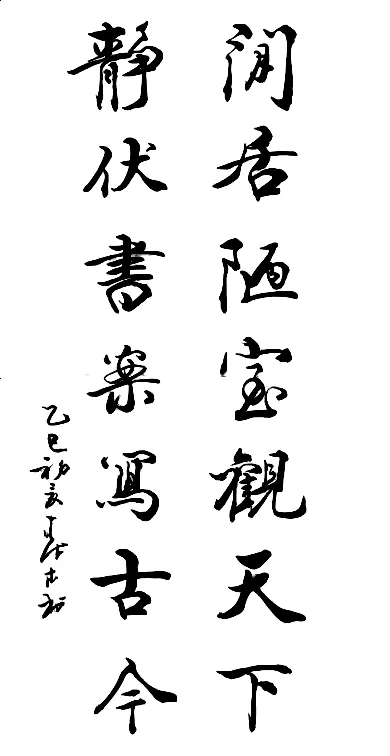 閒居陋室觀天下
靜伏書案寫古今
乙巳初夏